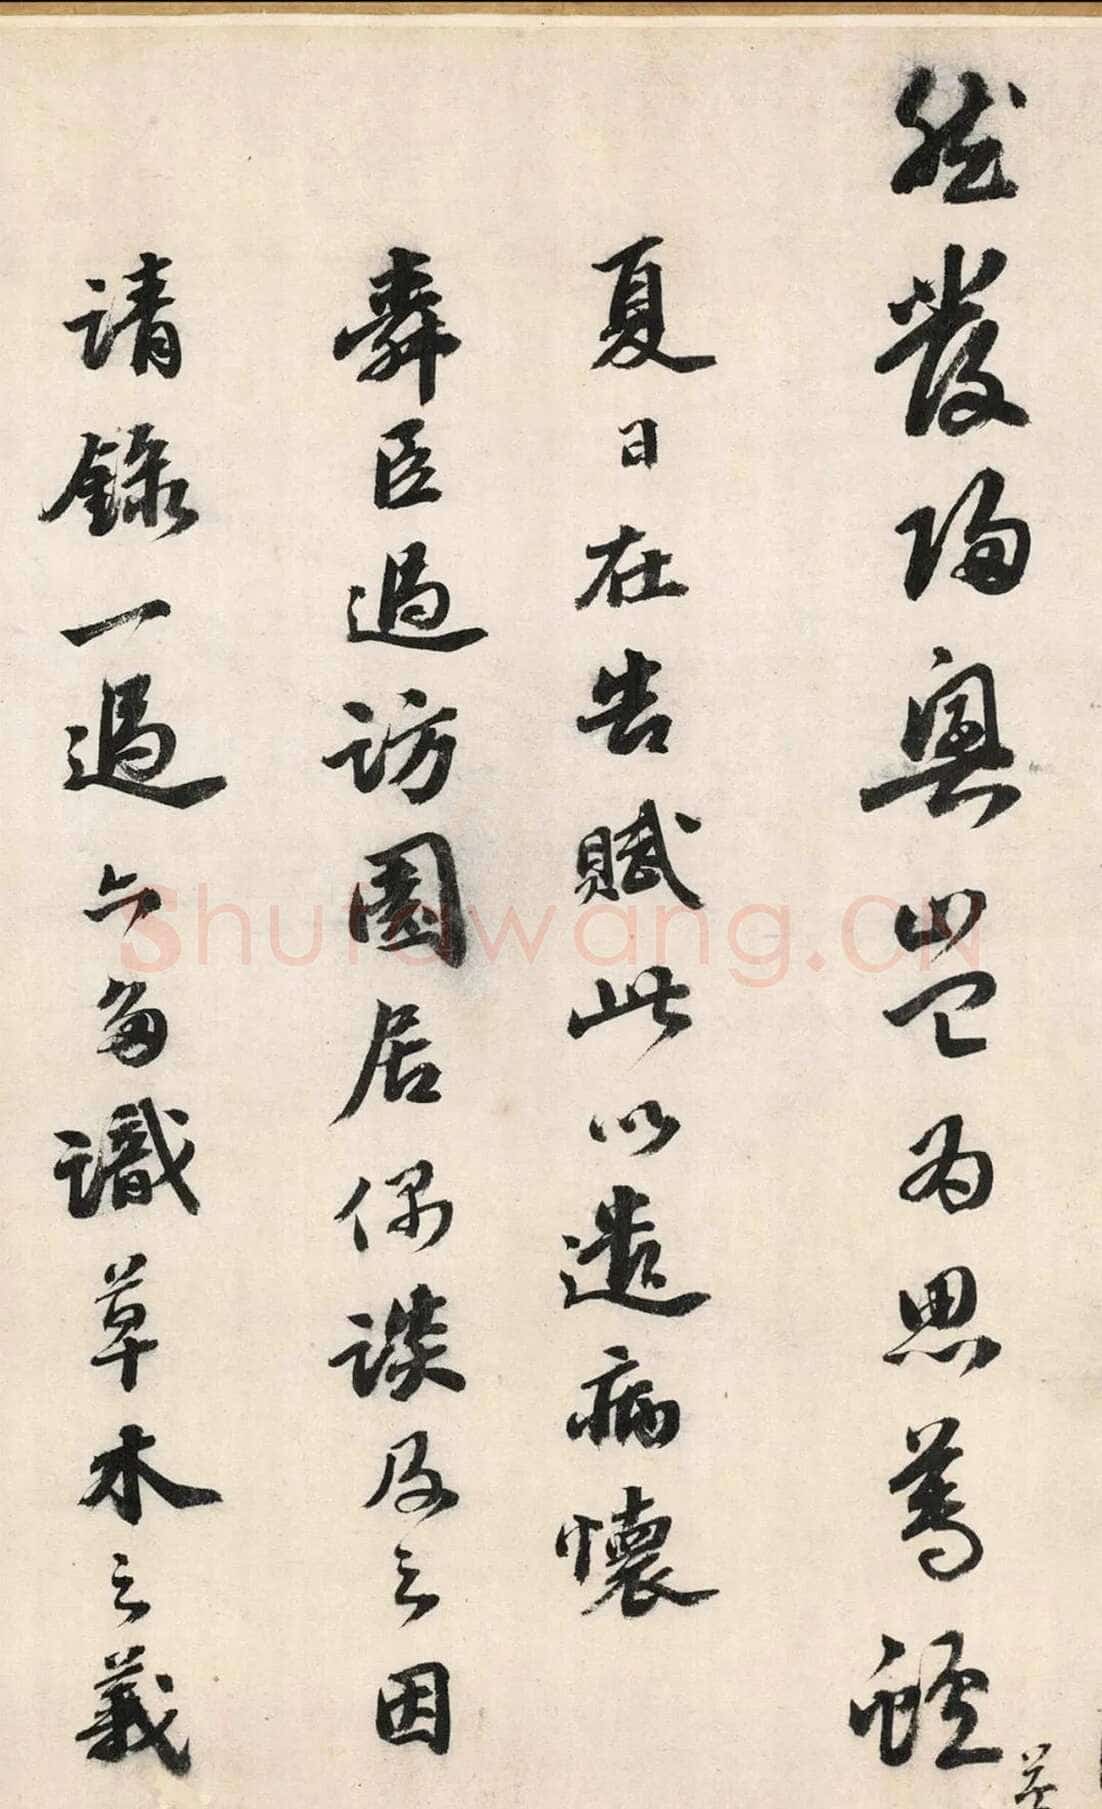 然發歸興豈為思蓴鱸
夏日在告賦此以遣病懷
舜臣過訪園居偶談及之因
請錄一過亦多識草木之義
Shufawang.CN